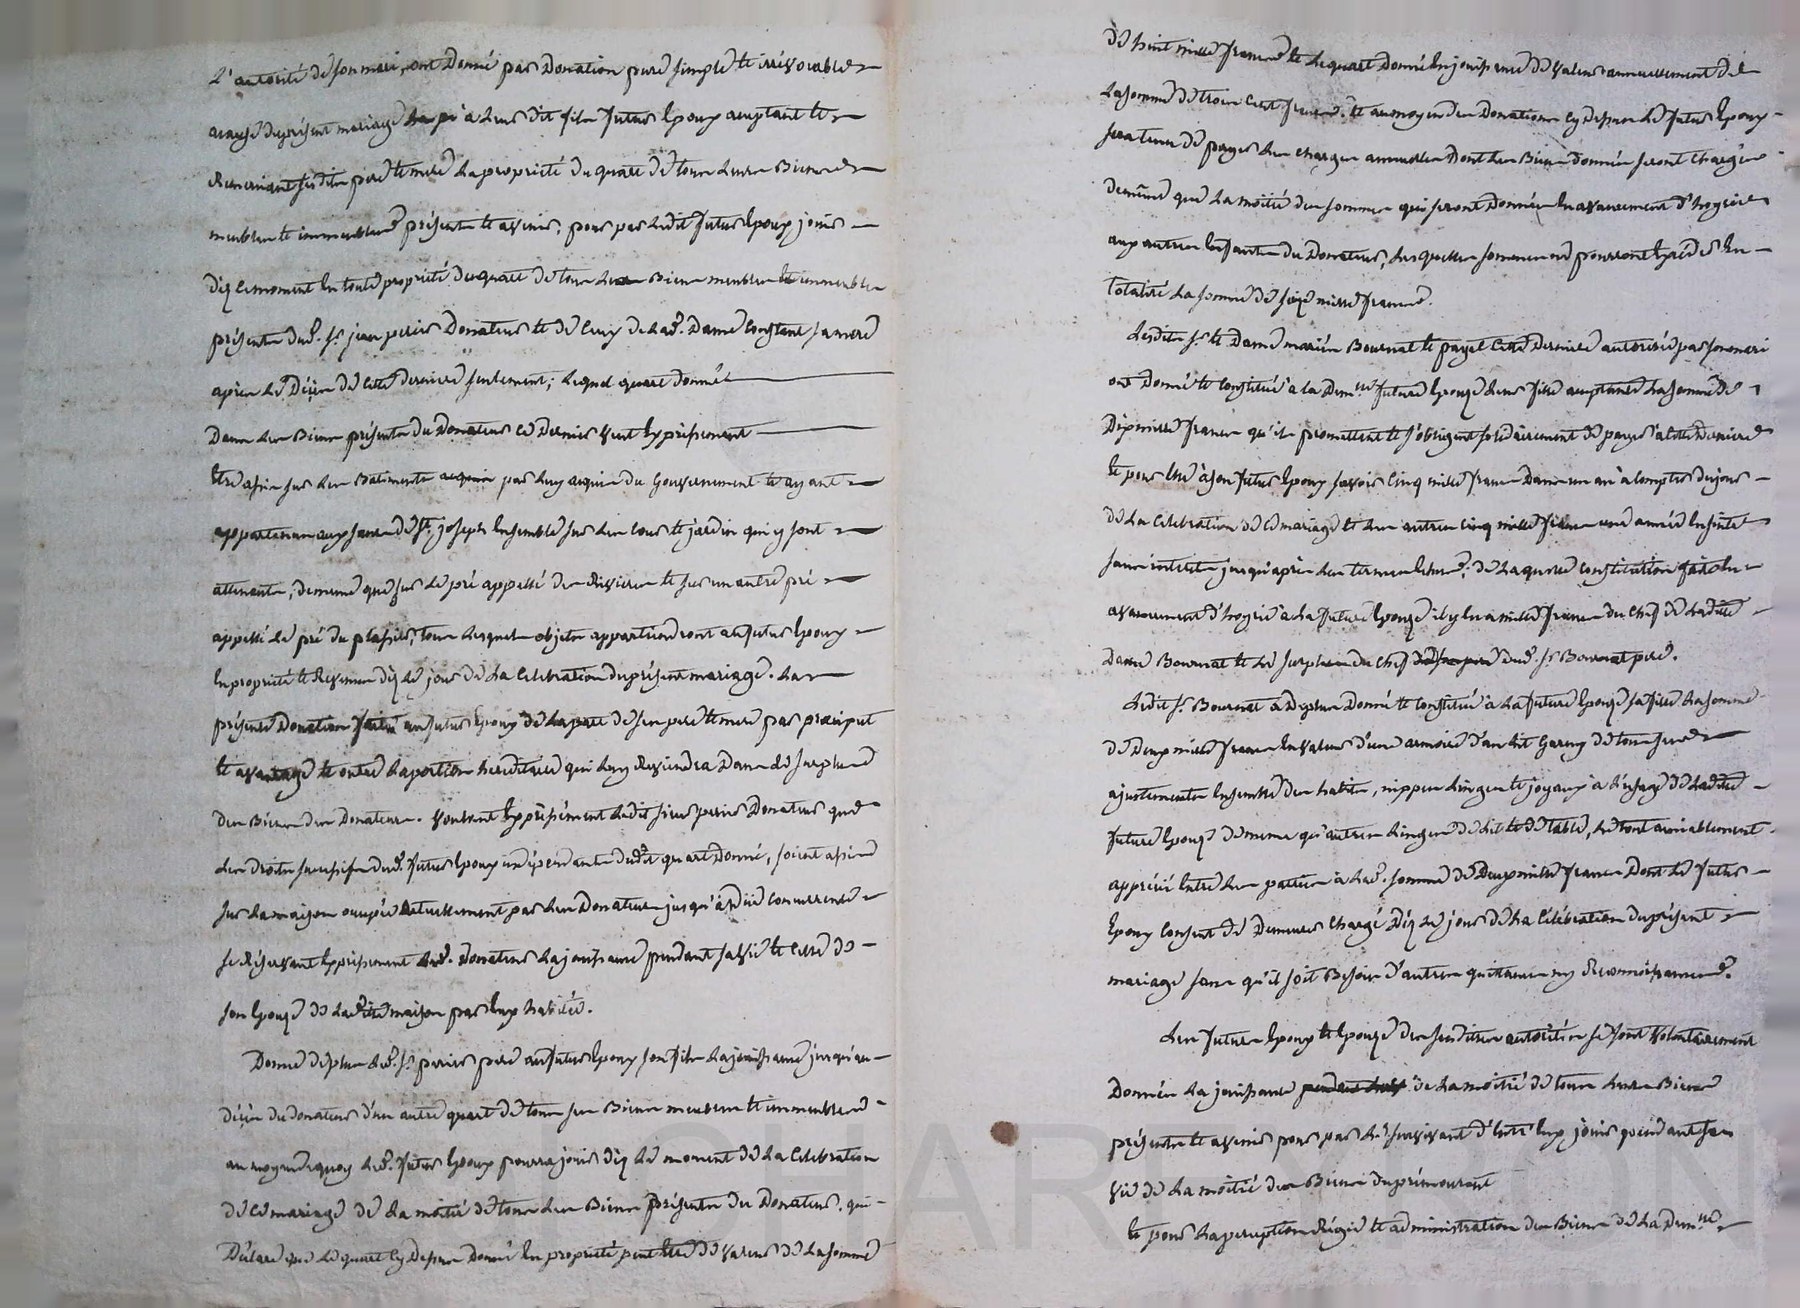 L'autorité de son mari, ont Donné par Donation pure simple et irrévocable
a cause du présent mariage à leur dit fils futur Epoux acceptant et
Remerciant sesdits pere et mere La propriété du quart de tous leurs Biens
meubles et immeubles présents et avenir, pour par Ledit futur Epoux jouir
déz ce moment En toute propriété du quart de tous les Biens meubles et immeubles
présents dud. Sr. jean perier Donateur et de Ceux de lad. Dame Constant sa mere
après Le Décès de Cette derniere seulement; Lequel quart donné
Dans les Biens présents du Donateur ce Dernier veut Expressement
Etre assis sur les Batiments par luy acquis du Gouvernement et ayant
appartenu aux sœurs de St. joseph Ensemble sur les cours et jardin qui y sont
attenants, de meme que sur Le pré appellé des Rivieres et sur un autre pré
appellé Le pré du plasier, tous Lesquels objets appartiendront au futur Epoux
En propriété et Revenus déz Le jour de La Celebration du présent mariage. La
présente Donation faite au futur Epoux de La part de ses pere et mere par préciput
et avantage et outre La portion hereditaire qui luy Reviendra Dans Le surplus
des Biens des Donateurs. voulant Expressément Ledit sieur perier Donateur que
les droits successifs dud. futur Epoux indépendants dudit quart Donné, soient assis
sur La maison occupée actuellement par les Donateurs jusqu'à düe concurrence
se Réservant Expressement Led. Donateur La jouissance pendant sa vie et Celle de
son Epouse de Ladite maison par Eux habitée.
Donne de plus Led. Sr. perier pere au futur Epoux son fils La jouissance jusqu'au
décès du donateur d'un autre quart de tous ses Biens meubles et immeubles
au moyen de quoy Led. futur Epoux pourra jouir déz Le moment de La Celebration
de Ce mariage de La moitié de tous les Biens présents du Donateur. qui
Déclare que Le quart Cy Dessus Donné En propriété peut Etre de valeur de La somme
de huit mille francs et Le quart Donné En jouissance de valeur annuellement de
La somme de trois Cent francs. Et au moyen des Donations Cy dessus Le futur Epoux
sera tenu de payer les charges annuelles Dont les Biens donnés seront Chargés
de meme que La moitié des sommes qui seront Données En avancement d'hoyrie
aux autres Enfants du Donateur, Lesquelles sommes ne pourront Excéder En
totalité La somme de seize mille francs.
Lesdits Sr. et Dame mariés Bournat et payet Cette Derniere autorisée par son mari
ont Donné et Constitué à la Demlle future Epouse leur fille acceptante La somme de
Dix mille francs qu'ils promettent et s'obligent solidairement de payer à cette Derniere
et pour Elle à son futur Epoux savoir Cinq mille francs Dans un an à Compter du jour
de La Celebration de ce mariage et les autres Cinq mille francs une année Ensuite
sans interets jusqu'après les termes Echus; de Laquelle constitution faite En
avancement d'hoyrie à La future Epouse il y En a mille francs du Chef de Ladite
Dame Bournat et Le surplus du Chef dud. Sr. Bournat pere.
Ledit Sr. Bournat a De plus Donné et Constitué à La future Epouse sa fille La somme
de Deux mille francs En valeur d'une armoire d'un Lit Garny de tous ses
ajustements Ensemble des habits, nippes Linges et joyaux à L'usage de Ladite
future Epouse de meme qu'autres Linges de Lit et de table, Le tout amiablement
apprécié Entre les parties à Lad. somme de Deux mille francs Dont Le futur
Epoux Consent de Demeurer Chargé Déz Le jour de La Célébration du présent
mariage sans qu'il soit Besoin d'autres quittances ny Reconnoissances.
Les futurs Epoux et Epouse des susdites autorités se sont volontairement
Donnés La jouissance de La moitié de tous leurs Biens
présents et avenir pour par Le survivant d'Entr'Eux jouir pendant sa
vie de La moitié des Biens du prémourant
Et pour La perception Régie et administration des Biens de La Demlle